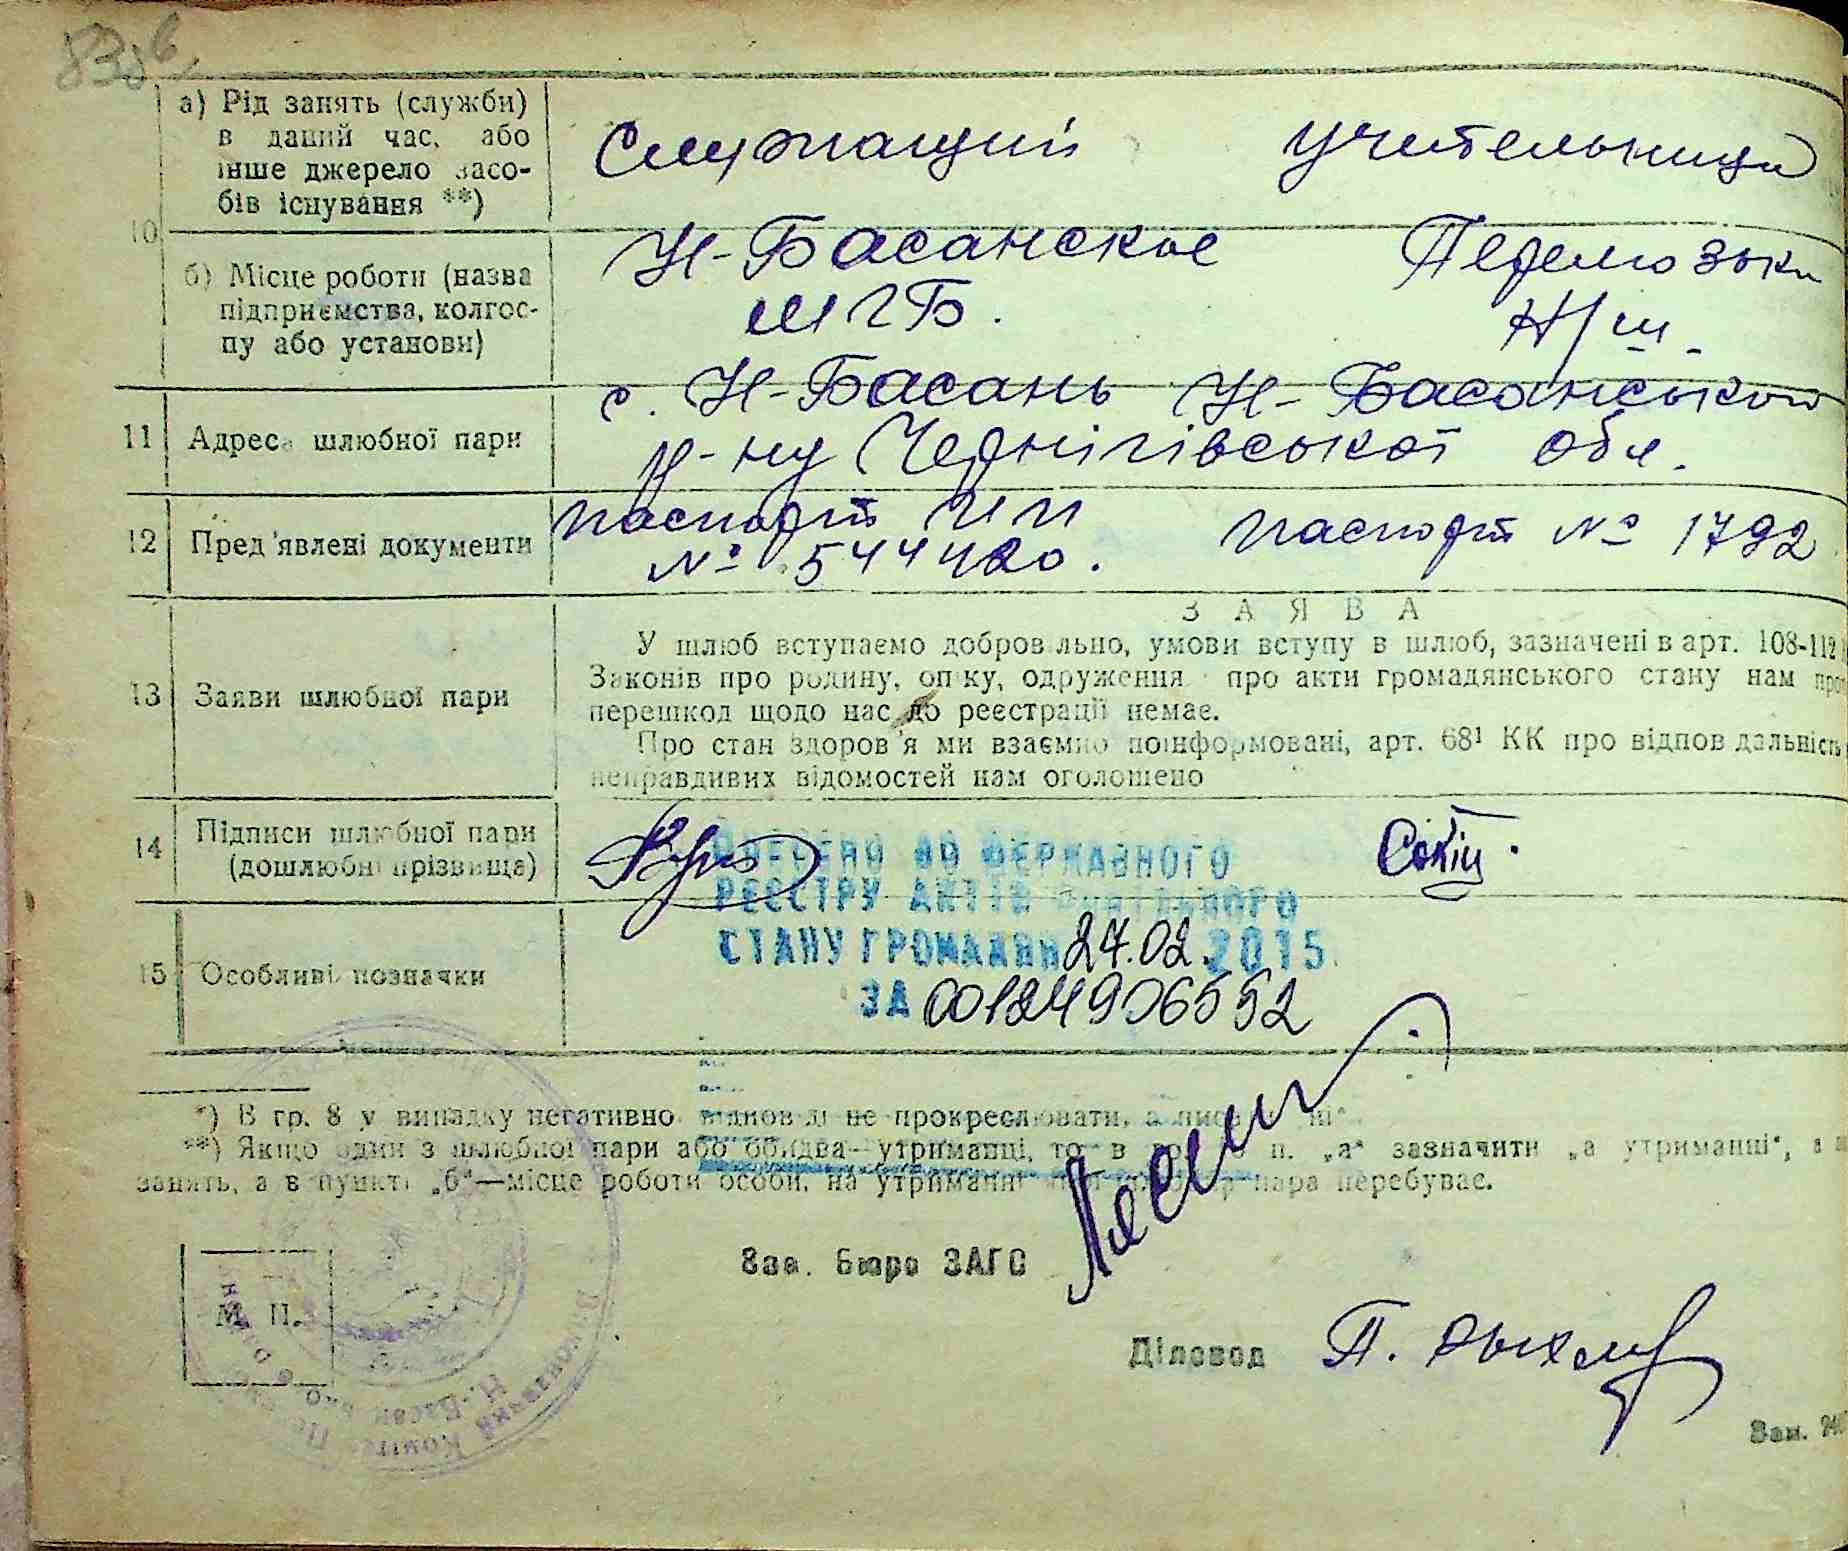 а) Рід занять (служби)
в даний час, або
інше джерело засо-
бів існування **)
Служащий учительниця
10
б) Місце роботи (назва
підприємства, колгос-
пу або установи)
Н-Басанское
МГБ.
Н/ш.
11 Адреса шлюбної пари
с. Н-Басань Н-Басанської
р-ну Чернігівської обл.
12 Пред'явлені документи
паспорт
№ 544420.
паспорт № 1792
З А Я В А
13 Заяви шлюбної пари
У шлюб вступаємо добровільно, умови вступу в шлюб, зазначені в арт. 108-112
Законів про родину, опіку, одруження про акти громадянського стану нам
перешкод щодо нас до реєстрації немає.
Про стан здоров'я ми взаємно поінформовані, арт. 68¹ КК про відповідальність
неправдивих відомостей нам оголошено
14 Підписи шлюбної пари
(дошлюбні прізвища)
ВНЕСЕНО ДО ДЕРЖАВНОГО
РЕЄСТРУ АКТІВ ЦИВІЛЬНОГО
СТАНУ ГРОМАДЯН 24.02.2015
ЗА 00124906552
15 Особливі позначки
*) В гр. 8 у випадку негативно відповіді не прокреслювати, а писа ні"
**) Якщо один з шлюбної пари або обидва—утриманці, то в п. „а" зазначити „а утриманні", а
занять, а в пункті „б"—місце роботи особи, на утриманні пара перебуває.
Зав. Бюро ЗАГС
М. П.
Діловод
Зам.